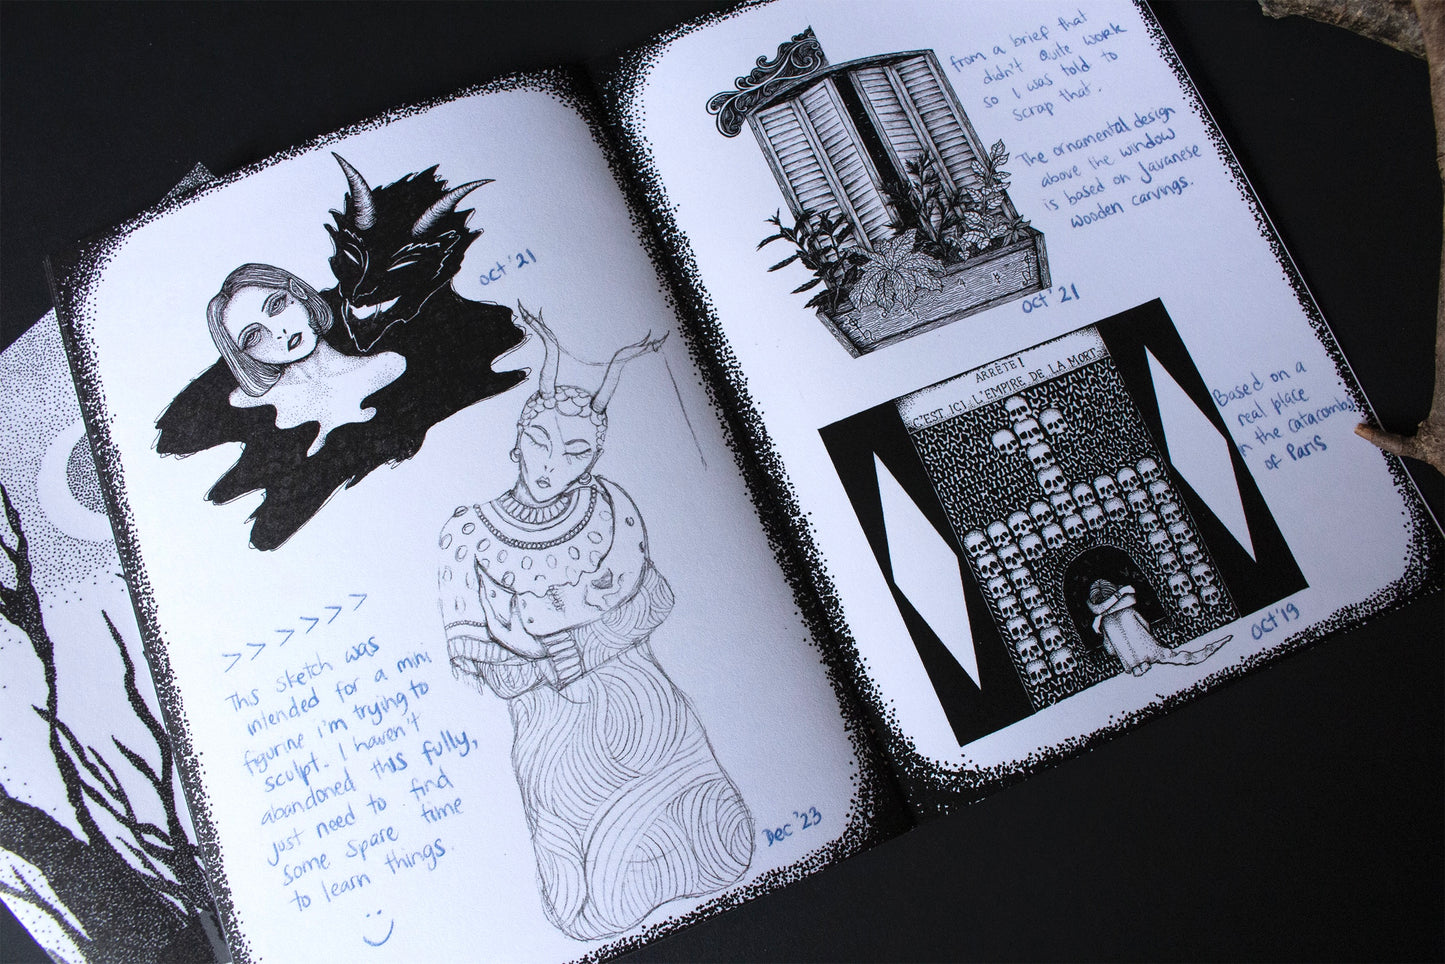 oct '21
> > > > >
This sketch was
intended for a mini
figurine i'm trying to
sculpt. I haven't
abandoned this fully,
just need to find
some spare time
to learn things.
:)
Dec '23
from a brief that
didn't quite work
so I was told to
scrap that.
The ornamental design
above the window
is based on Javanese
wooden carvings.
oct '21
ARRÊTE!
C'EST ICI L'EMPIRE DE LA MORT
Based on a
real place
in the catacombs
of Paris
oct '19